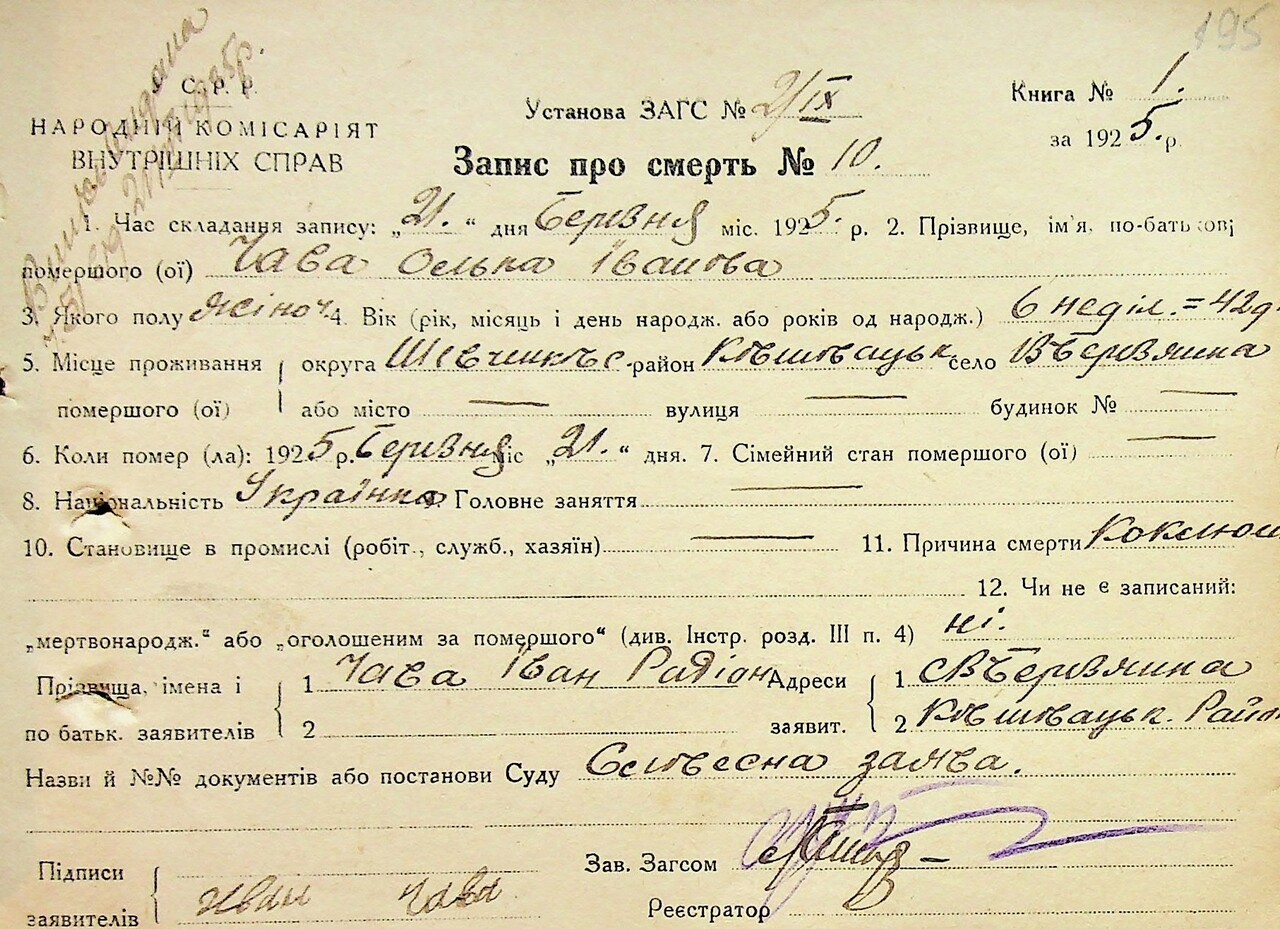 195
С. Р. Р.
НАРОДНІЙ КОМІСАРІЯТ
ВНУТРІШНІХ СПРАВ
Установа ЗАГС № 2/IX
Книга № 1.
за 1925. р.
Запис про смерть № 10.
1. Час складання запису: „21.“ дня Березня міс. 1925. р. 2. Прізвище, ім'я, по-батькові
помершого (ої) Чава Олька Іванова
3. Якого полу жіноч. 4. Вік (рік, місяць і день народж. або років од народж.) 6 неділ. = 42д
5. Місце проживання помершого (ої) округа Шевчиківс. район Ківшовацьк. село В Березянка
або місто — вулиця — будинок № —
6. Коли помер (ла): 1925 р. Березня міс „21.“ дня. 7. Сімейний стан помершого (ої) —
8. Національність Українка 9. Головне заняття —
10. Становище в промислі (робіт., служб., хазяїн) — 11. Причина смерти Коклюш
12. Чи не є записаний:
„мертвонародж.“ або „оголошеним за помершого“ (див. Інстр. розд. III п. 4) ні.
Прізвища, імена і по батьк. заявителів 1 Чава Іван Радіон. Адреси заявит. 1 с В Березянка
2 2 Ківшовацьк. Район
Назви й №№ документів або постанови Суду Словесна заява.
Зав. Загсом
Підписи заявителів Иван Чава
Реєстратор